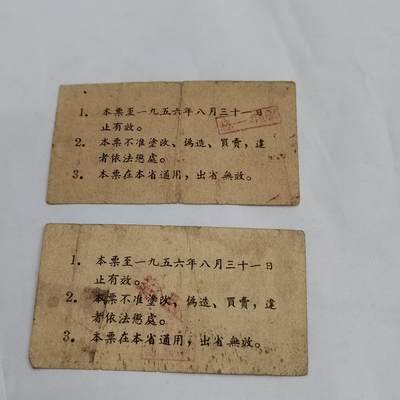 1. 本票至一九五六年八月三十一日
止有效。
2. 本票不准塗改、偽造、買賣，違
者依法懲處。
3. 本票在本省通用，出省無效。
1. 本票至一九五六年八月三十一日
止有效。
2. 本票不准塗改，偽造、買賣，違
者依法懲處。
3. 本票在本省通用，出省無效。